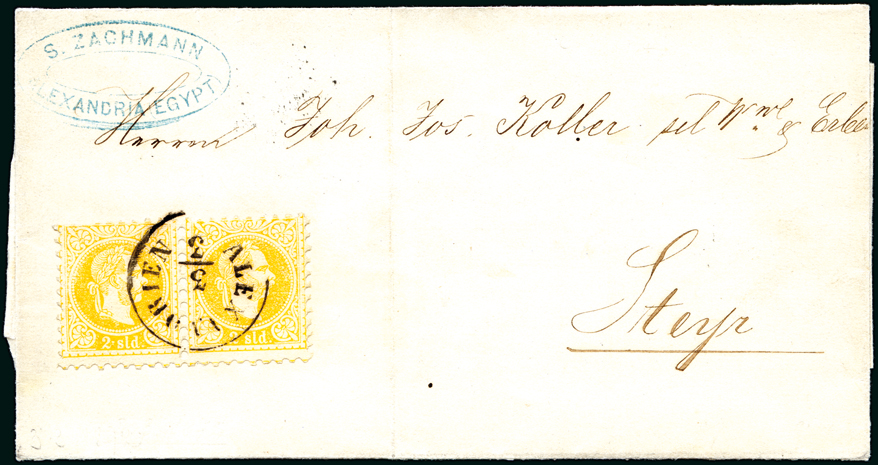 S. ZACHMANN
ALEXANDRIA (EGYPT)
Herrn Joh. Jos. Koller sel. Wwe & Erben
Steyr
ALEXANDRIEN
2 sld.
2 sld.